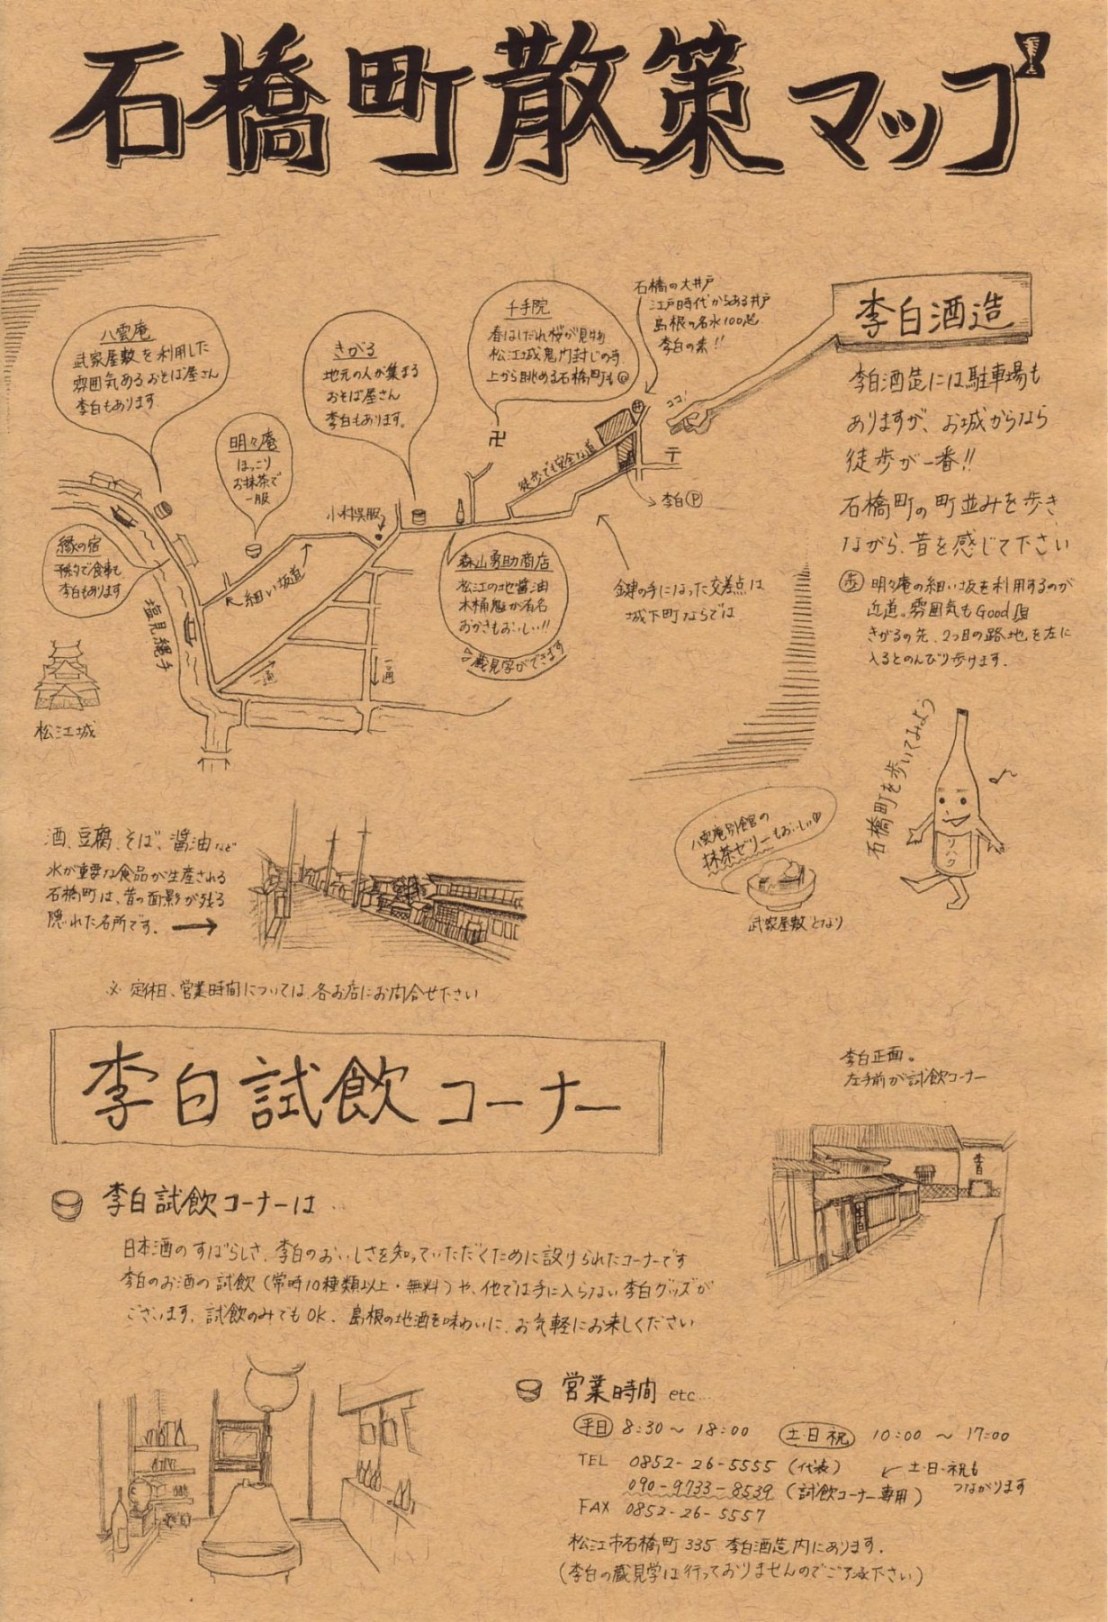 石橋町散策マップ
八雲庵
武家屋敷を利用した
雰囲気あるおそば屋さん
李白もあります
明々庵
ほっこり
お抹茶で
一服
きがる
地元の人が集まる
おそば屋さん
李白もあります。
千手院
春はしだれ桜が見事
松江城鬼門封じの寺
上から眺める石橋町も
石橋の大井戸
江戸時代からある井戸
島根の名水100選
李白の素!!
ココ!
李白酒造
李白酒造には駐車場も
ありますが、お城からなら
徒歩が一番!!
石橋町の町並みを歩き
ながら、昔を感じて下さい
歩 明々庵の細い坂を利用するのが
近道。雰囲気もGood
きがるの先、2つ目の路地を左に
入るとのんびり歩けます。
卍
徒歩でも安全な道
〒
李白Ⓟ
小林呉服
縁の宿
予約で食事も
李白もあります
細い坂道
塩見縄手
森山勇助商店
松江の地醤油
木桶魁が有名
おかきもおいしい!!
蔵見学ができます
鍵の手になった交差点は
城下町ならでは
一通
一通
松江城
石橋町を歩いてみよう
リハク
八雲庵別館の
抹茶ゼリーもおいしい
武家屋敷となり
酒、豆腐、そば、醤油など
水が重要な食品が生産される
石橋町は、昔の面影が残る
隠れた名所です。→
※ 定休日、営業時間については、各お店にお問合せ下さい
李白試飲コーナー
李白正面。
左手前が試飲コーナー
李白
李白試飲コーナーは
日本酒のすばらしさ、李白のおいしさを知っていただくために設けられたコーナーです
李白のお酒の試飲(常時10種類以上・無料)や、他では手に入らない李白グッズが
ございます。試飲のみでもOK。島根の地酒を味わいに、お気軽にお来しください
営業時間 etc...
平日 8:30～18:00 土・日・祝 10:00～17:00
TEL 0852-26-5555(代表)
090-9733-8539(試飲コーナー専用)
土・日・祝も
つながります
FAX 0852-26-5557
松江市石橋町335 李白酒造内にあります。
(李白の蔵見学は行っておりませんのでご了承下さい)